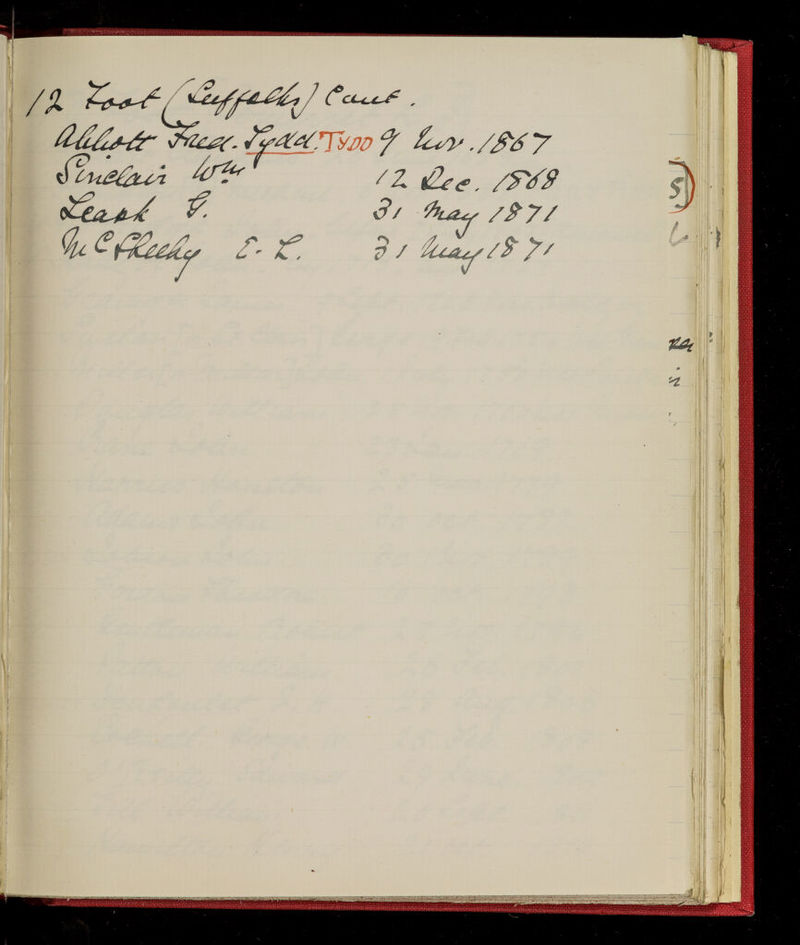 12 Foot (Suffolks) Cont.
Abbott Fred. Tydd. TYDD 9 Nov. 1867
Sinclair Wm 12 Dec. 1868
Leask G. 31 May 1871
McSheehy E. L. 31 May 1871